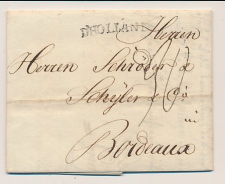 Herren
D'HOLLANDE
Herren Schröder &
Schÿler & Co
Bordeaux